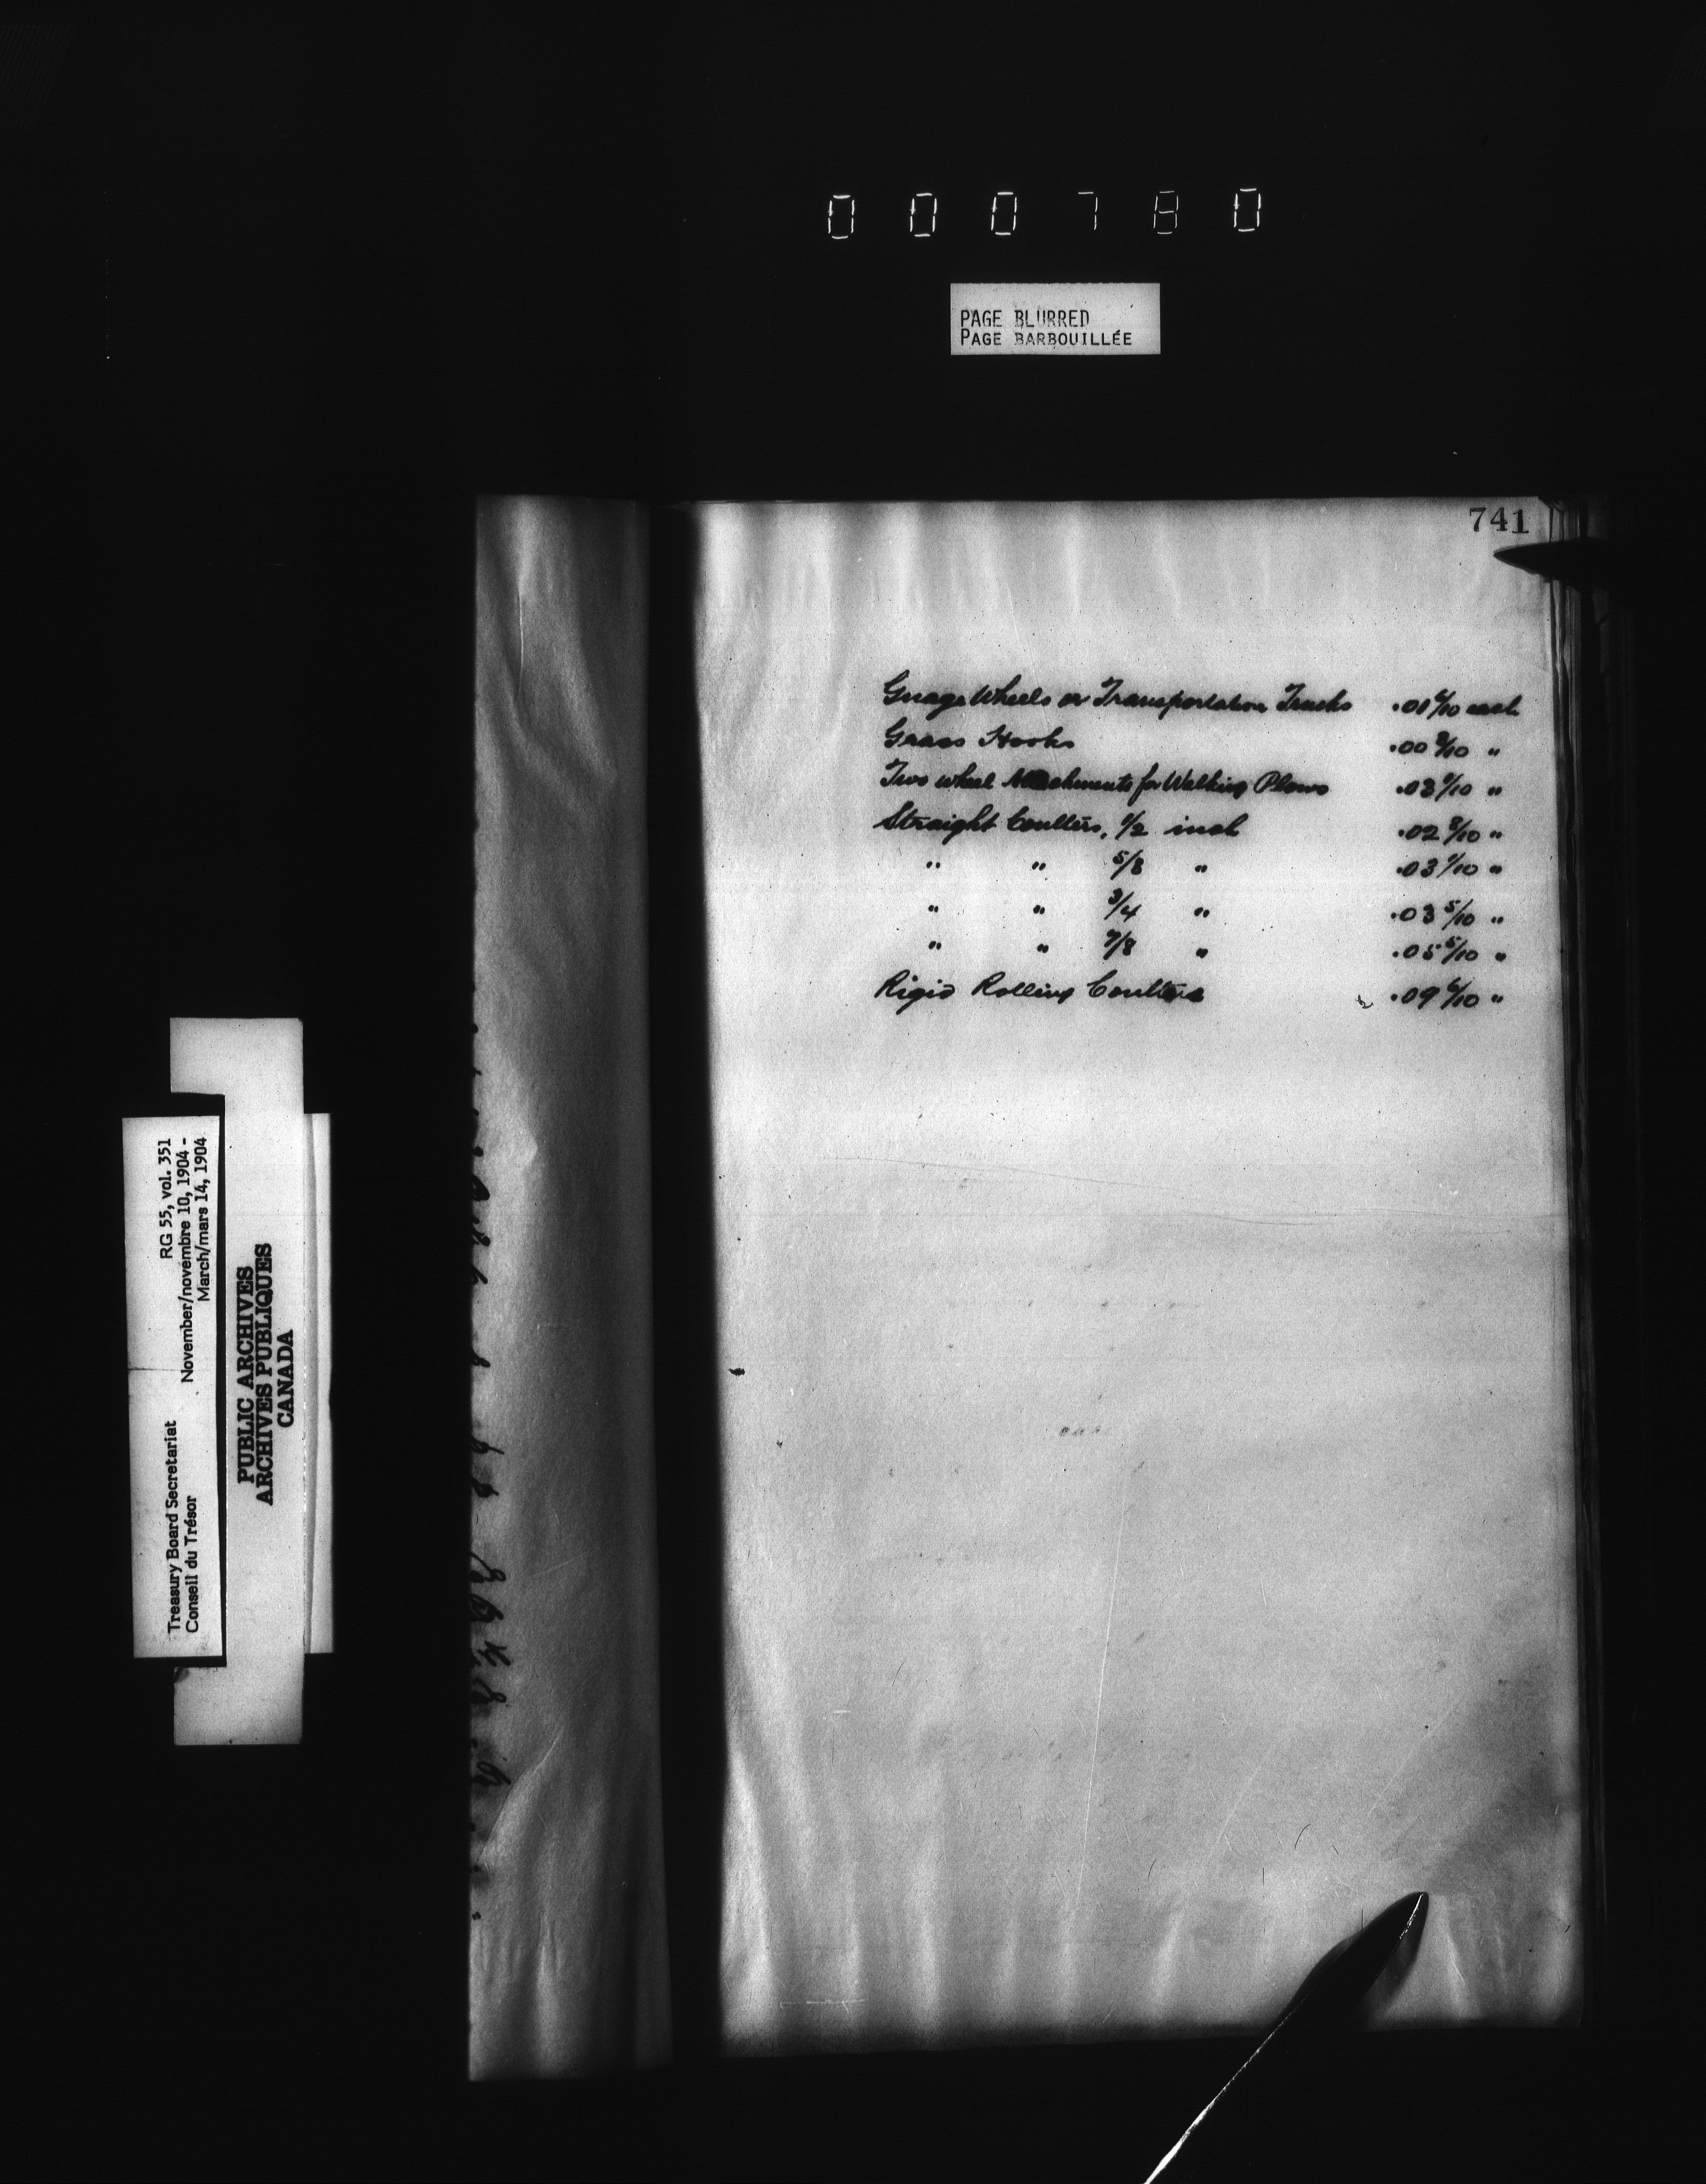 000780
PAGE BLURRED
PAGE BARBOUILLÉE
741
Guage Wheels or Transportation Trucks .01 6/10 each
Grass Hooks .00 3/10 "
Two wheel Attachments for Walking Plows .03 "
Straight Coulters, 1/2 inch .02 "
" " 5/8 " .03 1/10 "
" " 3/4 " .03 5/10 "
" " 7/8 " .05 5/10 "
Rigid Rolling Coulters .09 6/10 "
Treasury Board Secretariat RG 55, vol. 351
Conseil du Trésor November/novembre 10, 1904 -
March/mars 14, 1904
PUBLIC ARCHIVES
ARCHIVES PUBLIQUES
CANADA